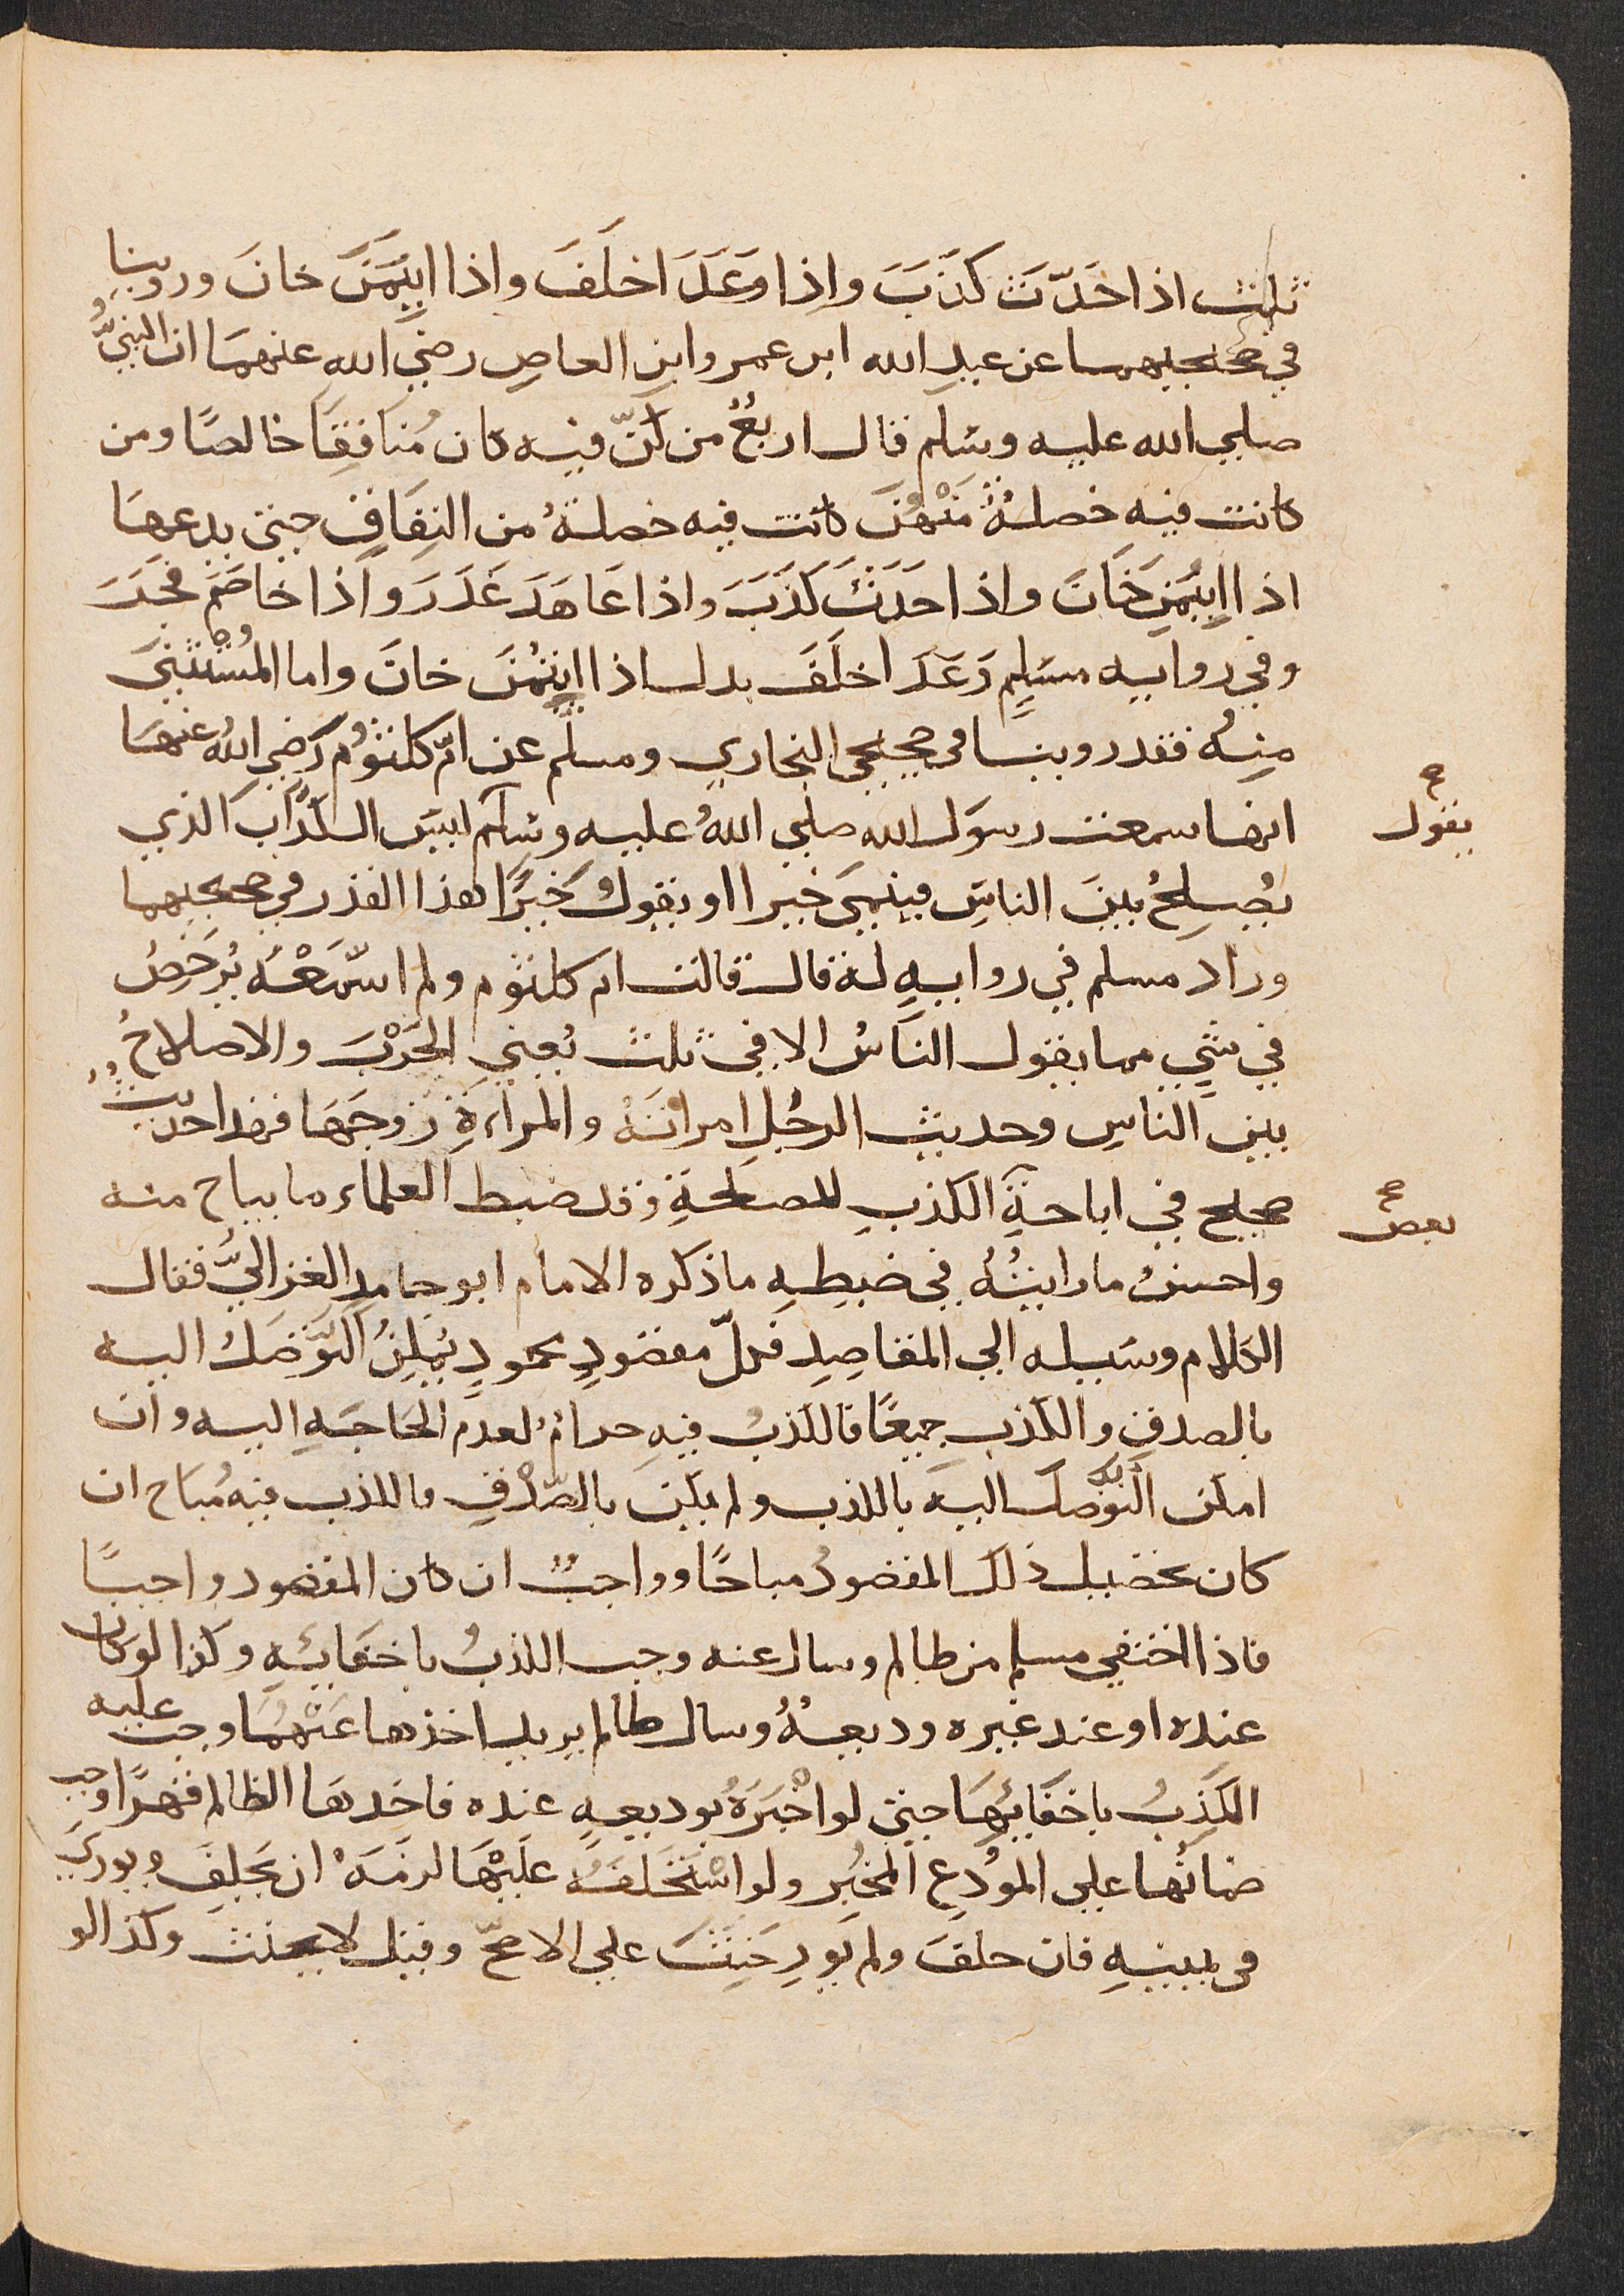 ثلث اذا حَدّثَ كذَبَ واِذا وَعَدَ اخلَفَ واذا ايتُمَنَ خانَ وروينا
في صحيحيهما عن عبدِ الله ابن عمرو ابن العاصِ رضي الله عنهمَا ان النبيَّ
صلي الله عليه وسَلم قال اربعٌ من كنّ فيه كان مُنَافِقًا خالصًا ومن
كانت فيه خصلةٌ منهُنَ كانت فيه خصلةٌ من النِفَاقِ حتي يدعهَا
اذا ايتُمِنَ خَانَ واذا حَدَثَ كَذَبَ واذا عَاهَدَ غَدَرَ واذا خاصَمَ فجَرَ
وفي روايه مسَلِمٍ وَعَدَ اخلَفَ بدل اذا ايتُمنَ خانَ واما المُستثنَي
مِنهُ فقد روينا في صحيحي البخاري ومسلم عن امّ كلثوُم رَضي اللهُ عنهَا
انها سمعت رسوَل الله صلي اللهُ عليه وسَلم ليسَ الكذَّاب الذي
يقول
يُصِلحُ بينَ الناسِ فينمِيَ خيرا او يقوُلُ خَيرًا هذا القدر في صحيحيهما
وزاد مسلم في روايهٍ له قال قالت ام كلثوم ولم اسْمَعْه يُرَخِصُ
في شيٍ مما يقول الناسُ الا في ثلث يَعني الحَرْبَ والاصلاحُ
بين الناسِ وحديث الرجُلِ امراتَهُ والمراءةِ زوجَهَا فهذا حديثٌ
صحيح في اباحةِ الكذبِ للمصلحَةِ وقد ضبط العلماء ما يباح منه
بعض
واحسنُ ما رايتُهُ في ضبطِهِ ما ذكره الامام ابو حامدِ الغزاليُّ فقال
الكلام وسَيله الي المقاصِدِ فكلّ مقصودٍ محمودٍ يمكِنُ التَّوَصلُ اليه
بالصدقِ والكذبِ جميعًا فالكذبُ فيهِ حرامٌ لعدم الحَاجَهِ اليه وان
امكن التَّوَصلُ اليه بالكذب ولم يمكن بالصّدْقِ فالكذب فيه مُباح ان
كان تحصيل ذلك المقصودُ مباحًا وواجبٌ ان كان المقصود واجبًا
فاذا اختفي مسلم من ظالم وسال عنه وجب الكذبُ باخفَايِهِ وكذا لو كان
عنده او عند غيره وديعهٌ وسال ظالم يريد اخذها عنهَا وجبَ عليه
الكَذِبُ باخفَايِهَا حتي لو اخبَرَهُ بوديعهٍ عنده فاخذهَا الظالم قهرًا وجب
ضمانُها علي المُودَعِ المخبِر ولو استَحلَفَهُ عَلَيْهَا لزمَهُ ان يَحلِفَ ويورِي
في يمينِهِ فان حلفَ ولم يورِ حَنِثَ علي الاصحّ وقيل لا يحنث وكذا لو